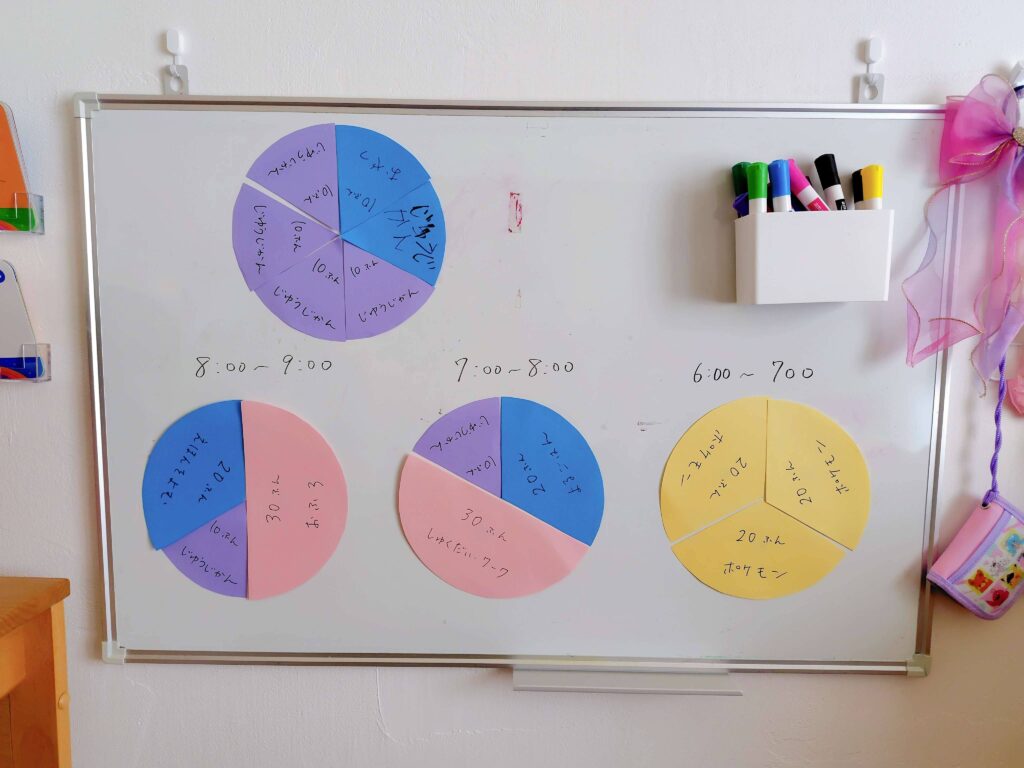 じゆうじかん
10ぷん
おやつ
10ぷん
じゆうじかん
10ぷん
じゆうじかん
10ぷん
じゆうじかん
10ぷん
8:00〜9:00
7:00〜8:00
6:00〜700
20ぷん
30ぷん
おふろ
10ぷん
じゆうじかん
じゆうじかん
10ぷん
20ぷん
30ぷん
しゅくだい・ワーク
ポケモン
20ぷん
ポケモン
20ぷん
20ぷん
ポケモン